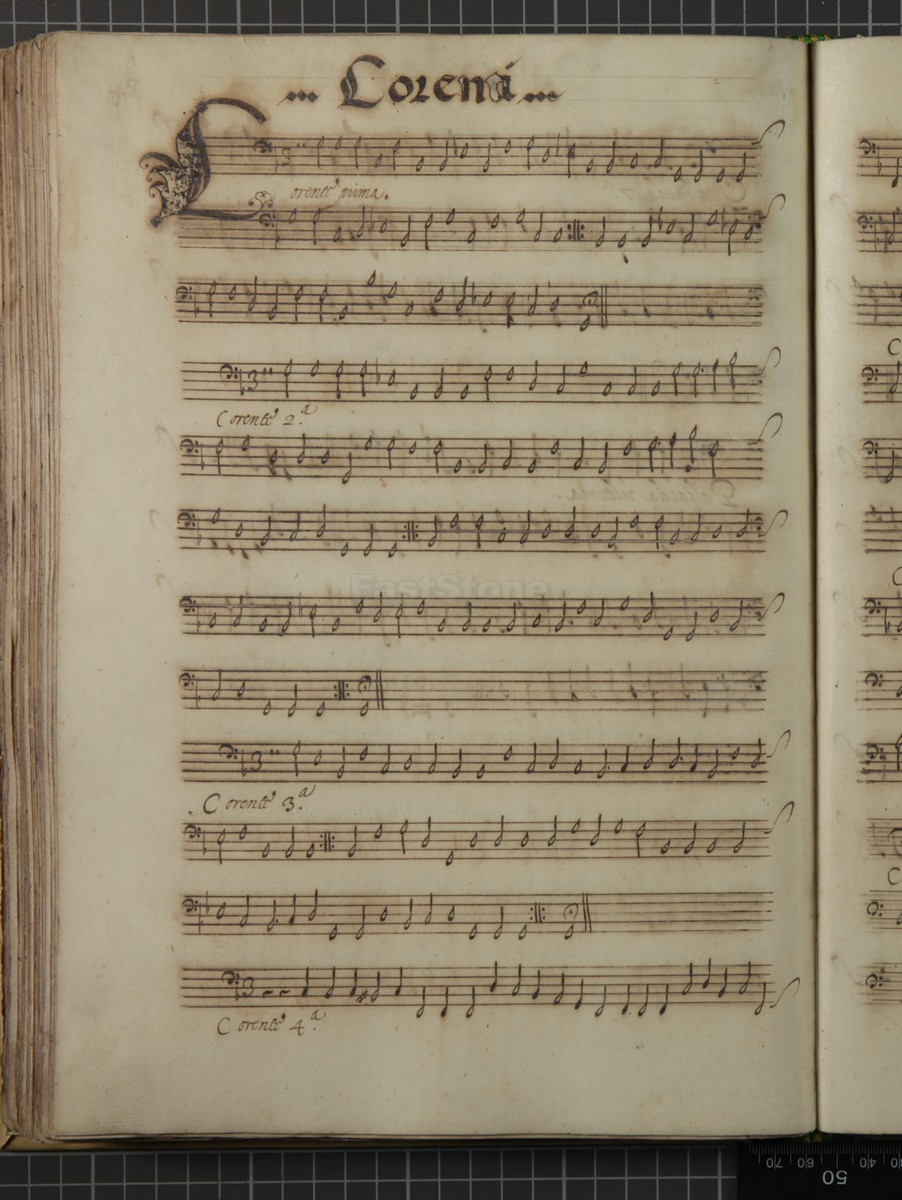 ... Corenti ...
Corente prima.
Corente 2.a
FastStone
Corente 3.a
Corente 4.a
C
C
C
50
70 60 40